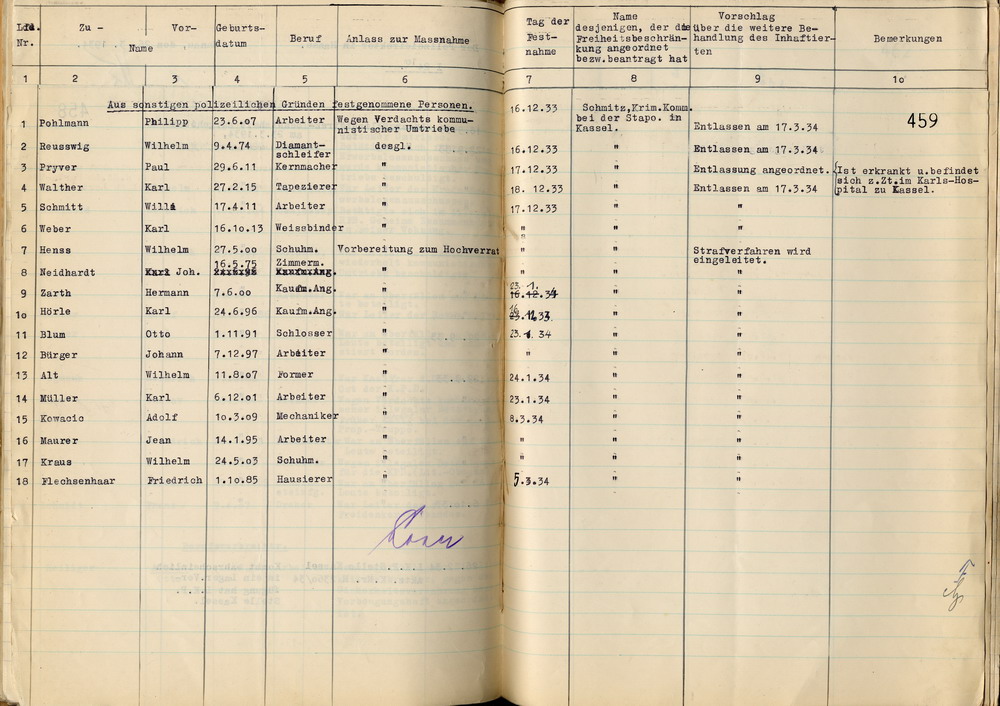 Lfd. Nr. | Zu - Name | Vor- | Geburts-datum | Beruf | Anlass zur Massnahme | Tag der Fest-nahme | Name desjenigen, der die Freiheitsbeschrän-kung angeordnet bezw.beantragt hat | Vorschlag über die weitere Be-handlung des Inhaftier-ten | Bemerkungen
1 | 2 | 3 | 4 | 5 | 6 | 7 | 8 | 9 | 1o
Aus sonstigen polizeilichen Gründen festgenommene Personen.
459
1 | Pohlmann | Philipp | 23.6.o7 | Arbeiter | Wegen Verdachts kommu-nistischer Umtriebe | 16.12.33 | Schmitz,Krim.Komm. bei der Stapo. in Kassel. | Entlassen am 17.3.34
2 | Reusswig | Wilhelm | 9.4.74 | Diamant-schleifer | desgl. | 16.12.33 | " | Entlassen am 17.3.34
3 | Pryver | Paul | 29.6.11 | Kernmacher | " | 17.12.33 | " | Entlassung angeordnet. | Ist erkrankt u.befindet sich z.Zt.im Karls-Hos-pital zu Kassel.
4 | Walther | Karl | 27.2.15 | Tapezierer | " | 18. 12.33 | " | Entlassen am 17.3.34
5 | Schmitt | Willi | 17.4.11 | Arbeiter | " | 17.12.33 | " | "
6 | Weber | Karl | 16.1o.13 | Weissbinder | " | " | " | "
7 | Henss | Wilhelm | 27.5.oo | Schuhm. | Vorbereitung zum Hochverrat | " | " | Strafverfahren wird eingeleitet.
8 | Neidhardt | Karl Joh. | 16.5.75 | Zimmerm. Kaufm.Ang. | " | " | " | "
9 | Zarth | Hermann | 7.6.oo | Kaufm.Ang. | " | 23. 1. 16.12.34 | " | "
1o | Hörle | Karl | 24.6.96 | Kaufm.Ang. | " | 16 23.12.33 | " | "
11 | Blum | Otto | 1.11.91 | Schlosser | " | 23.1. 34 | " | "
12 | Bürger | Johann | 7.12.97 | Arbeiter | " | " | " | "
13 | Alt | Wilhelm | 11.8.o7 | Former | " | 24.1.34 | " | "
14 | Müller | Karl | 6.12.o1 | Arbeiter | " | 23.1.34 | " | "
15 | Kowacic | Adolf | 1o.3.o9 | Mechaniker | " | 8.3.34 | " | "
16 | Maurer | Jean | 14.1.95 | Arbeiter | " | " | " | "
17 | Kraus | Wilhelm | 24.5.o3 | Schuhm. | " | " | " | "
18 | Flechsenhaar | Friedrich | 1.1o.85 | Hausierer | " | 5.3.34 | " | "